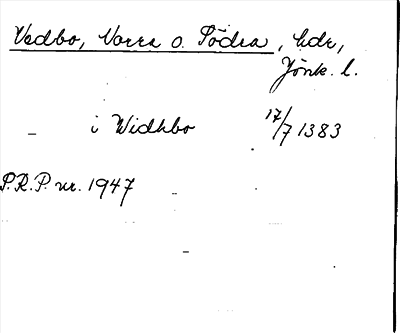 Vedbo, Norra o. Södra, hdr,
Jönk. l.
– i Widhbo 17/7 1383
S.R.P. nr. 1947